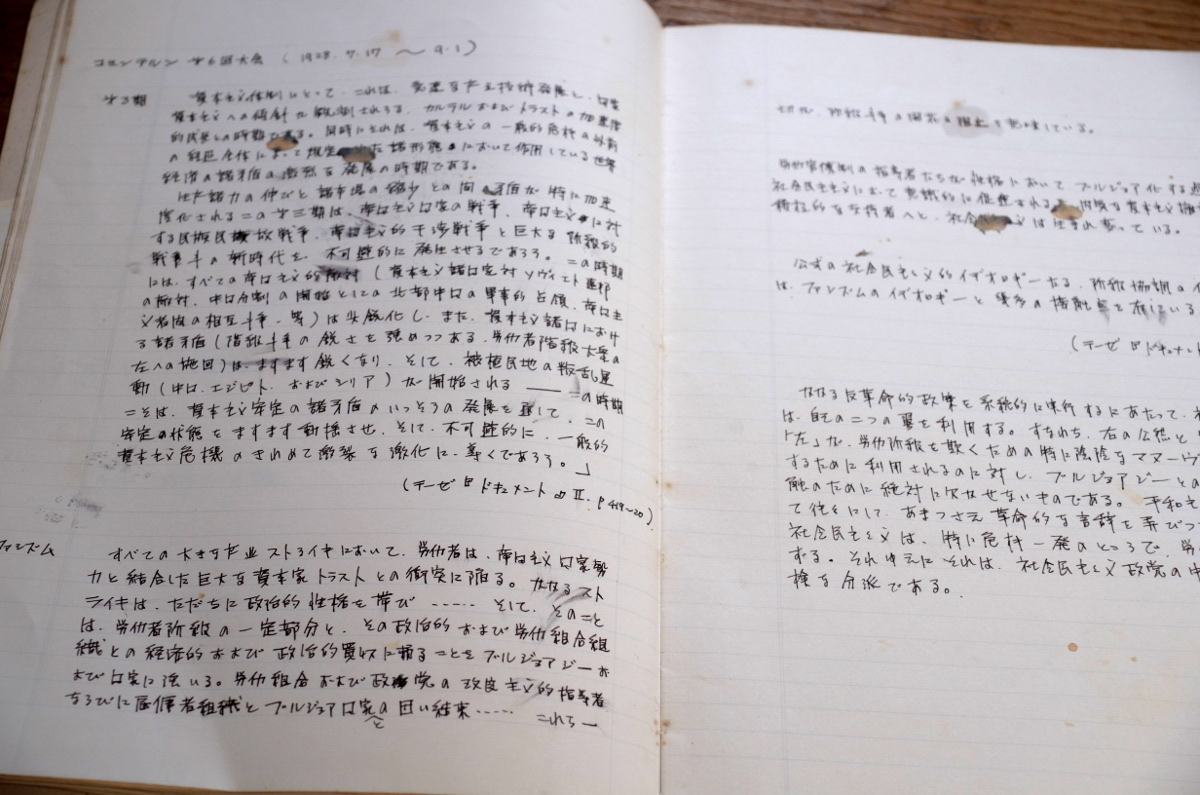 コミンテルン 才6回大会 ( 1928. 7.17 〜 9.1 )
才3期 資本主义体制にとって、これは、急速な 技術発展と、口家
資本主义への傾斜が観測されうる、カルテルおよびトラストの加速度
的成長との時期である。同時にそれは、資本主义の一般的危機の
の 全体によって規定された諸形態において作用している世界
経済の諸矛盾の激烈な発展の時期である。
生产諸力の伸びと諸市場の縮少との間の矛盾が特に加速
度化されるこの才三期は、帝口主义口家の戦争、帝口主义に対
する民族民放戦争、帝口主义的干渉戦争と巨大な階級的
戦争斗の新時代を、不可避的に発生させるであろう。この時期
には、すべての帝口主义的敵対（資本主义諸口家対ソヴィエト連邦
の敵対、中口分割の開始としての北部中口の軍事的占領、帝口主
义者間の相互斗争、等）は尖鋭化し、また、資本主义諸口におけ
る諸矛盾（階級斗争の鋭さを強めつつある、労仂者階級大衆の
左への旋回）は、ますます鋭くなり、そして、被植民地の叛乱運
動（中口、エジピト、およびシリア）が開始される —— この時期
ことは、資本主义安定の諸矛盾のいっそうの発展を通して、この
安定の状態をますます動揺させ、そして、不可避的に、一般的
資本主义危機のきわめて激裂な激化に、導くであろう。」
（テーゼ『ドキュメント』II. p419〜20）
ファシズム すべての大きな产业ストライキにおいて、労仂者は、帝口主义口家勢
力と結合した巨大な資本家トラストとの衝突に陥る。かかるスト
ライキは、ただちに政治的性格を帯び …… そして、そのこと
は、労仂者階級の一定部分と、その政治的および労仂組合組
織との経済的および政治的買収に頼ることをブルジョアジーお
よび口家に強いる。労仂組合および政党の改良主义的指導者
ならびに雇傭者組織とブルジョア口家との固い結束…… これら一
切が、階級斗争の開花の阻止を意味している。
労仂官僚制の指導者たちが性格においてブルジョア化する
社会民主主义によって意識的に促進される 資本主义
積極的な支持者へと、社会 义は生まれ変っている。
公式の社会民主主义的イデオロギーたる、階級協調のイ
は、ファシズムのイデオロギーと幾多の接触点を有している
（テーゼ『ドキュメント
かかる反革命的政策を系統的に実行するにあたって、
は、自己の二つの翼を利用する。すなわち、右の公然と
「左」が、労仂階級を欺くための特に陰険なマヌーヴ
するために利用されるのに対し、ブルジョアジーとの
触のために絶対に欠かせないものである。平和
て往々にして、あまつさえ革命的な言辞を弄びつ
社会民主主义は、特に危機一発のところで、労
する。それゆえにそれは、社会民主主义政党の中
険な分派である。